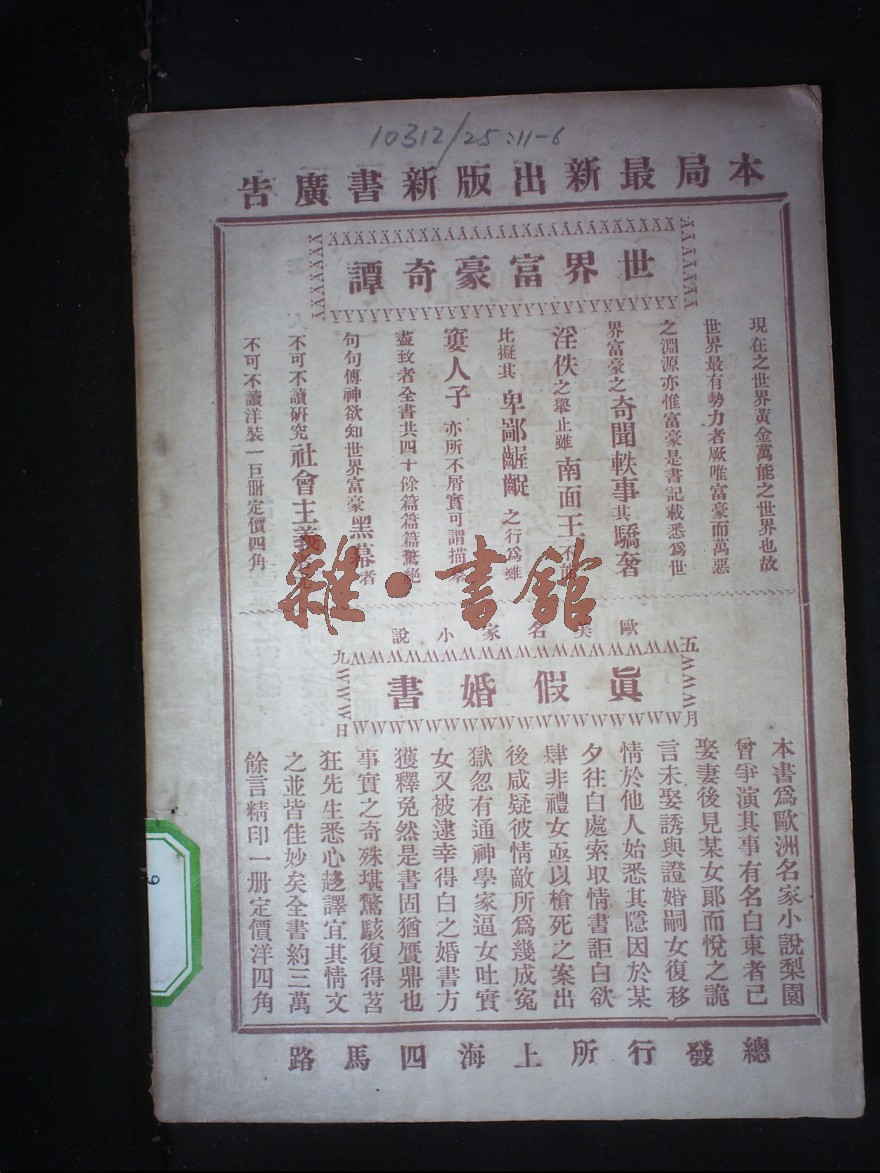 10312/25:11-6
本局最新出版新書廣告
世界富豪奇譚
現在之世界黃金萬能之世界也故
世界最有勢力者厥唯富豪而萬惡
之淵源亦惟富豪是書記載悉爲世
界富豪之奇聞軼事其驕奢
淫佚之舉止雖南面王不
比擬其卑鄙齷齪之行爲雖
窶人子亦所不屑實可謂描
盡致者全書共四十餘篇篇篇驚絕
句句傳神欲知世界富豪黑幕者
不可不讀研究社會主義者
不可不讀洋裝一巨冊定價四角
雜·書館
歐美名家小說
五月
九日
眞假婚書
本書爲歐洲名家小說梨園
曾爭演其事有名白東者已
娶妻後見某女郞而悅之詭
言未娶誘與證婚嗣女復移
情於他人始悉其隱因於某
夕往白處索取情書詎白欲
肆非禮女亟以槍死之案出
後咸疑彼情敵所爲幾成冤
獄忽有通神學家逼女吐實
女又被逮幸得白之婚書方
獲釋免然是書固猶贋鼎也
事實之奇殊堪驚駭復得茗
狂先生悉心迻譯宜其情文
之並皆佳妙矣全書約三萬
餘言精印一册定價洋四角
總發行所上海四馬路